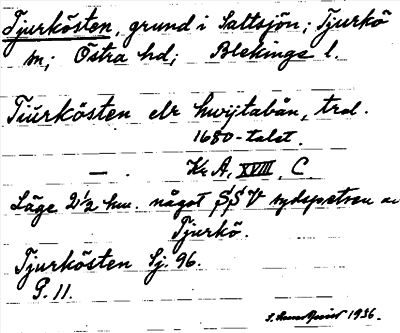 Tjurkösten, grund i Saltsjön; Tjurkö
sn; Östra hd; Blekinge l.
Tiürkösten elr hwijtabån, trol.
1680-talet.
— . Kr A, XVIII, C.
Läge 2½ km. något S/SV sydspetsen av
Tjurkö.
Tjurkösten Sj. 96.
P. 11.
1936.